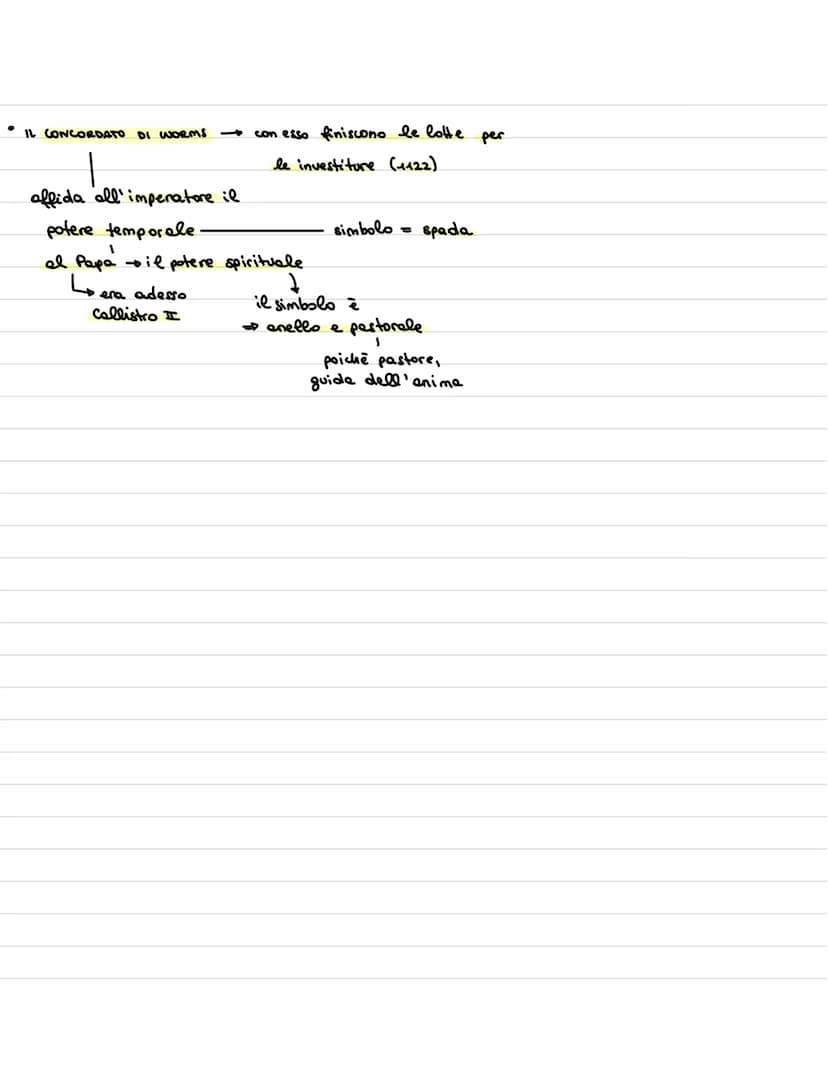 • IL CONCORDATO DI WORMS → con esso finiscono le lotte per
le investiture (1122)
affida all'imperatore il
potere temporale — simbolo = spada
al Papa → il potere spirituale
↳ era adesso
Callistro II
↓
il simbolo è
⇒ anello e pastorale
poichè pastore,
guida dell'anima